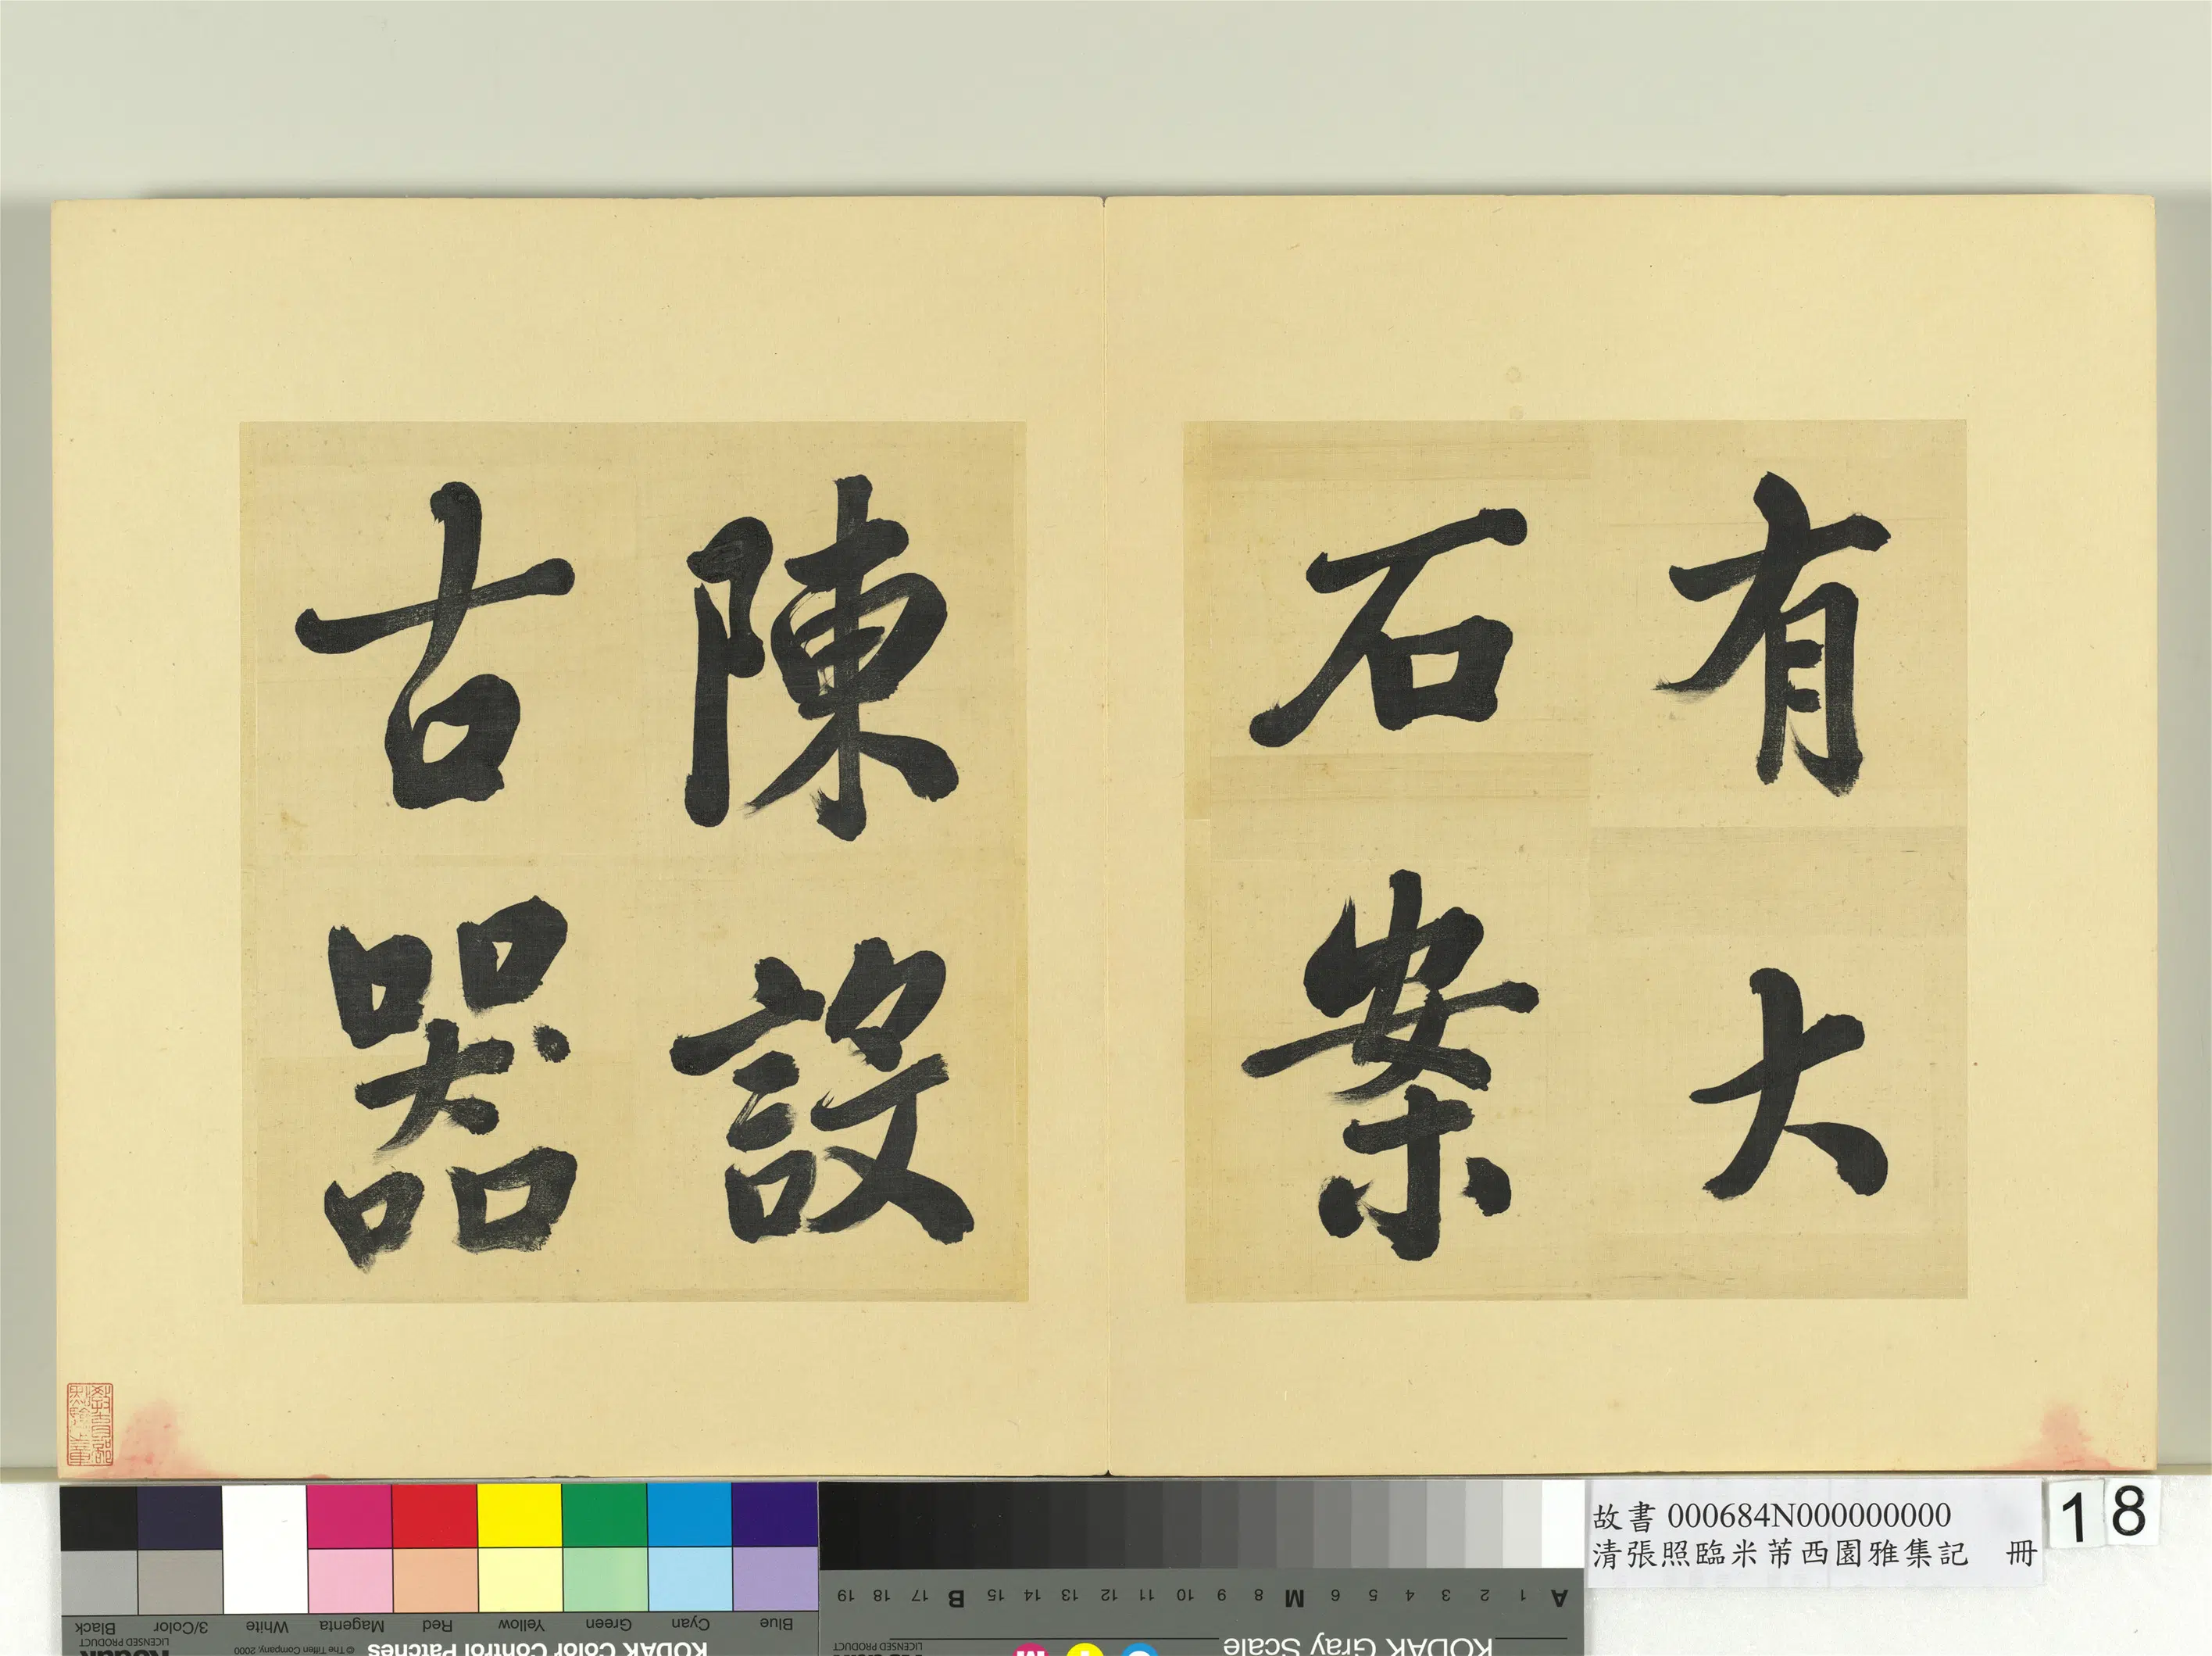 有大
石案
陳設
古器
教育部
點驗之章
故書 000684N000000000
清張照臨米芾西園雅集記 冊
18
Blue
Cyan
Green
Yellow
Red
Magenta
White
3/Color
Black
KODAK Color Control Patches
© The Tiffen Company, 2000
LICENSED PRODUCT
A 1 2 3 4 5 6 M 8 9 10 11 12 13 14 15 B 17 18 19
KODAK Gray Scale
LICENSED PRODUCT